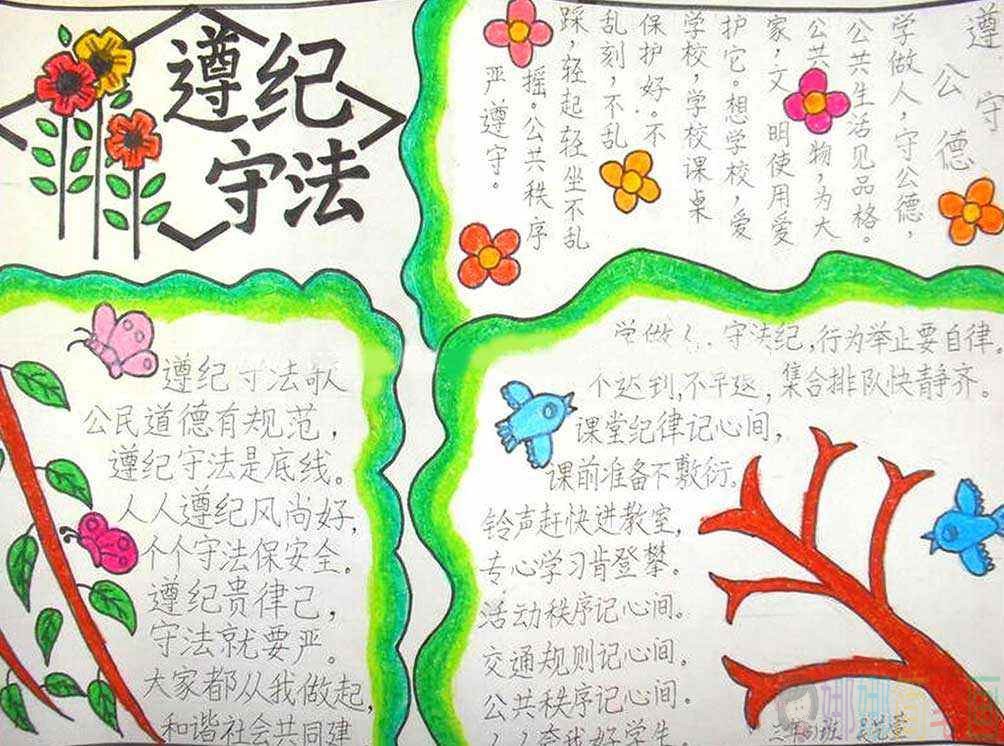 遵纪
守法
遵守公德
学做人，守公德，
公共生活见品格。
公共 物，为大
家，文 明使用爱
护它。想学校，爱
学校，学校课桌
保护好。不
乱刻，不乱
踩，轻起轻坐不乱
摇。公共秩序
严遵守。
遵纪守法歌
公民道德有规范，
遵纪守法是底线。
人人遵纪风尚好，
个个守法保安全。
遵纪贵律己，
守法就要严。
大家都从我做起，
和谐社会共同建
学做人，守法纪，行为举止要自律，
不迟到，不早退，集合排队快静齐。
课堂纪律记心间，
课前准备不敷衍。
铃声赶快进教室，
专心学习肯登攀。
活动秩序记心间。
交通规则记心间。
公共秩序记心间。
人人夸我好学生
班